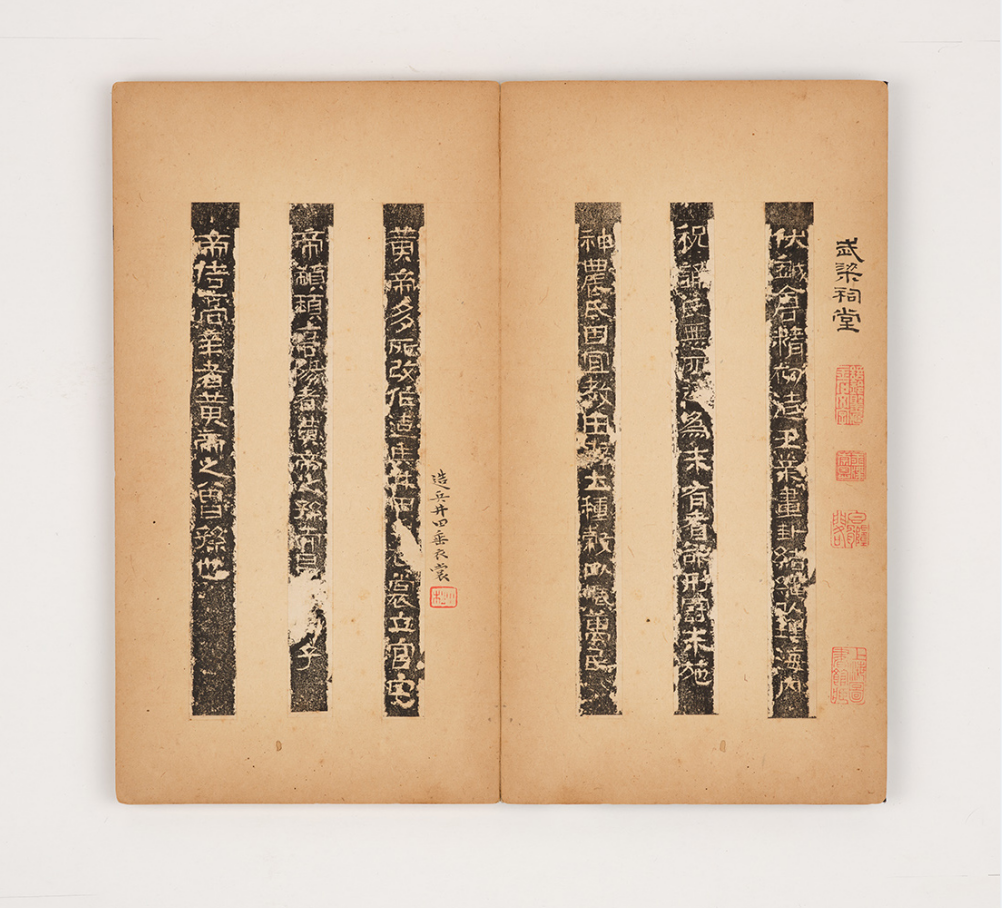 武梁祠堂
上海圖書館藏
伏戲倉精初造王業畫卦結繩以理海內
祝誦氏無所為未有耆欲刑罰未施
神農氏因宜教田辟土種穀以振萬民
造兵井田垂衣裳
黃帝多所改作造兵井田衣裳立宮宅
帝顓頊高陽者黃帝之孫而昌子
帝佶高辛者黃帝之曾孫也